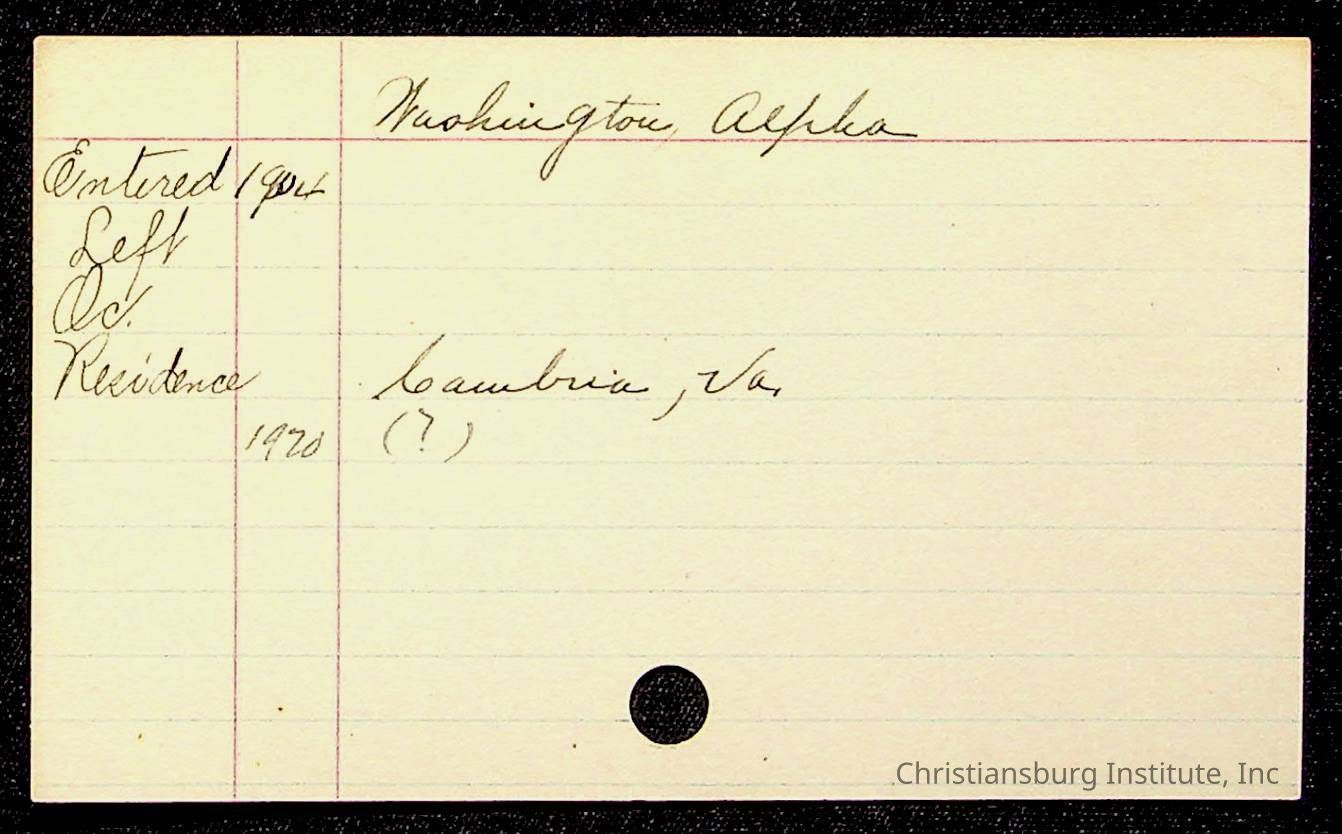 Washington, Alpha
Entered 1904
Left
Oc.
Residence Cambria, Va.
1920 (?)
Christiansburg Institute, Inc